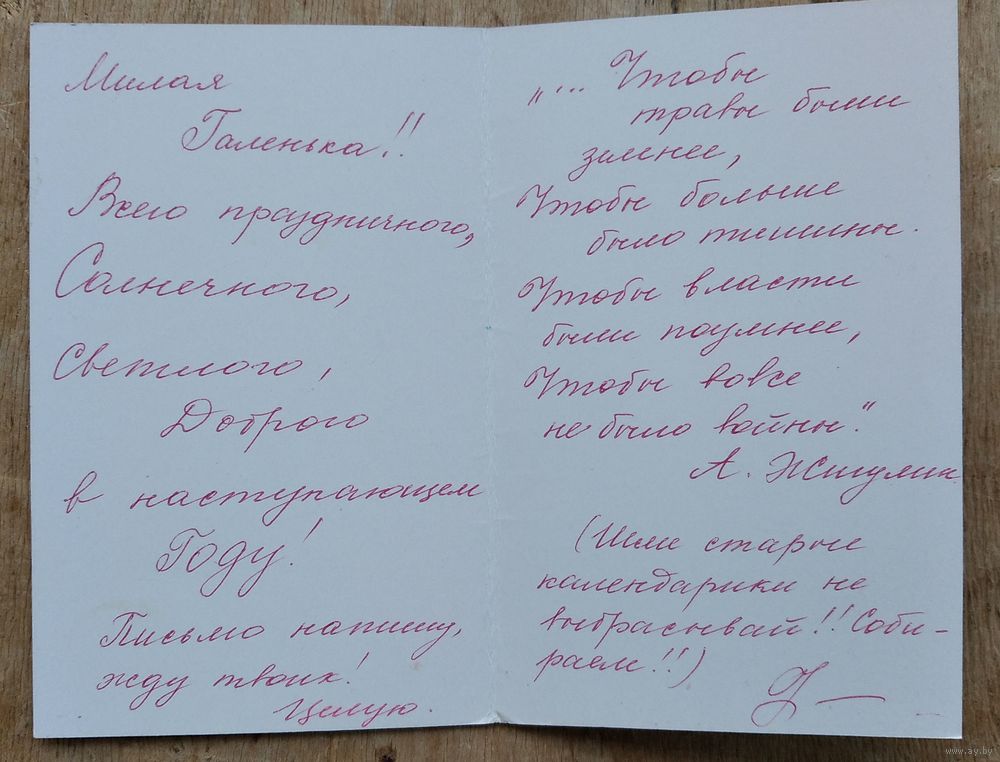 Милая
Галенька!!
Всего праздничного,
Солнечного,
Светлого,
Доброго
в наступающем
Году!
Письмо напишу,
жду твоих!
Целую.
"... Чтобы
травы были
зимнее,
Чтобы больше
было тишины.
Чтобы власти
были поумнее,
Чтобы вовсе
не было войны."
А. Жигулин
(Шли старые
календарики не
выбрасывай!! Соби-
раем!!)
www.ay.by